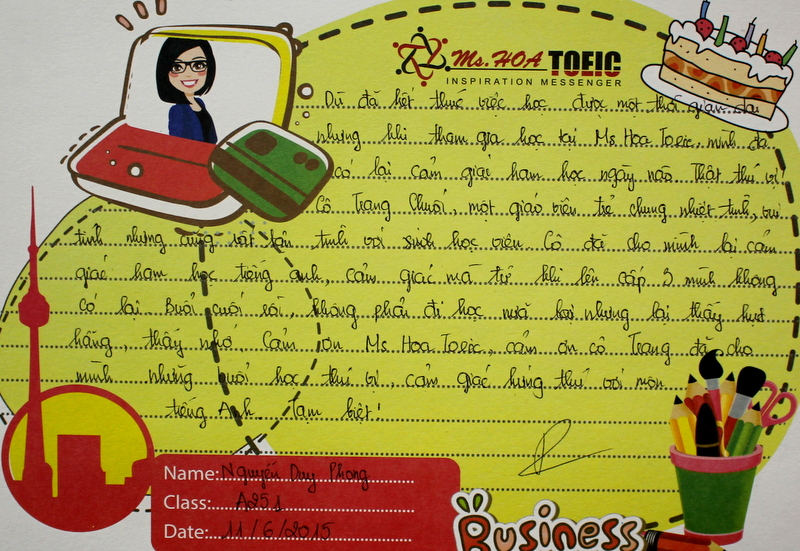 Ms. HOA TOEIC
INSPIRATION MESSENGER
Dù đã kết thúc việc học được một thời gian dài
nhưng khi tham gia học tại Ms Hoa Toeic, mình đã
có lại cảm giác ham học ngày nào Thật thú vị!
Cô Trang Chuối, một giáo viên trẻ chung nhiệt tình, vui
tính nhưng cũng rất tận tình với sinh học viên. Cô đã cho mình lại cảm
giác ham học tiếng anh, cảm giác mà từ khi lên cấp 3 mình không
có lại. Buổi cuối rồi, không phải đi học nữa nhưng lại thấy hụt
hẫng, thấy nhớ. Cảm ơn Ms Hoa Toeic, cảm ơn cô Trang đã cho
mình những buổi học thú vị, cảm giác hứng thú với môn
tiếng Anh Tạm biệt!
Name: Nguyễn Duy Phong
Class: A251
Date: 11/6/2015
Business